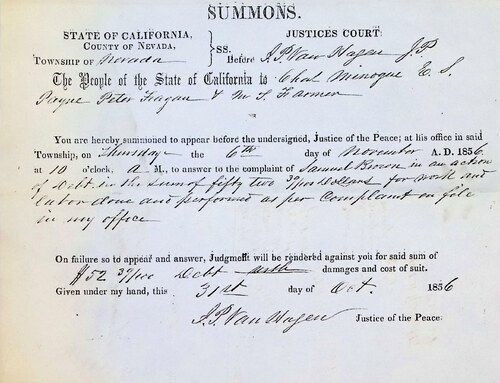 SUMMONS.
STATE OF CALIFORNIA, JUSTICES COURT:
COUNTY OF NEVADA, SS.
TOWNSHIP OF Nevada Before I. P. Van Hagen J.P
The People of the State of California to Chas Minogue E. S.
Payne Peter Fagan & M S. Farmer
You are hereby summoned to appear before the undersigned, Justice of the Peace; at his office in said
Township, on Thursday the 6th day of November A. D. 1856
at 10 o'clock, A M., to answer to the complaint of Samuel Brown in an action
of Debt in the sum of fifty two 30/100 Dollars for work and
labor done and performed as per Complaint on file
in my office
On failure so to appear and answer, Judgment will be rendered against you for said sum of
$52 30/100 Debt with damages and cost of suit.
Given under my hand, this 31st day of Oct. 1856
I. P. Van Hagen Justice of the Peace.